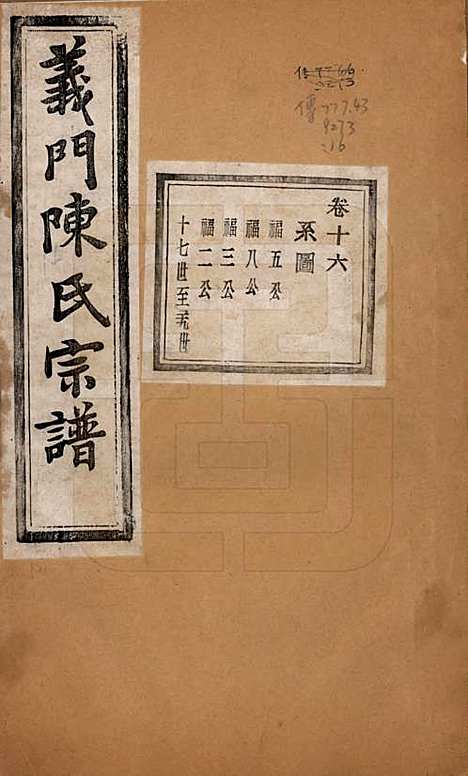 義門陳氏宗譜
卷十六
系圖
福五公
福八公
福三公
福二公
十七世至卅世
傳777.43
9273
:16